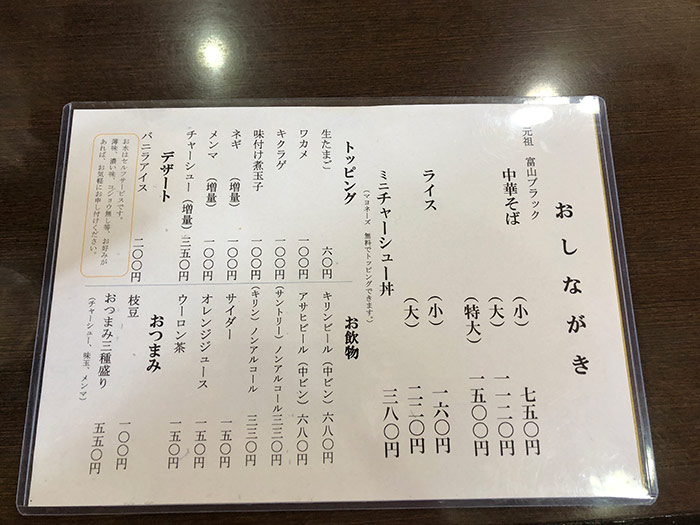 おしながき
元祖 富山ブラック
中華そば
（小） 七五〇円
（大） 一一二〇円
（特大） 一五〇〇円
ライス
（小） 一六〇円
（大） 二二〇円
ミニチャーシュー丼 三八〇円
（マヨネーズ 無料でトッピングできます。）
トッピング
生たまご 六〇円
ワカメ 一〇〇円
キクラゲ 一〇〇円
味付け煮玉子 一〇〇円
ネギ（増量） 一〇〇円
メンマ（増量） 一〇〇円
チャーシュー（増量） 三五〇円
デザート
バニラアイス 二〇〇円
お水はセルフサービスです。
薄味、濃い味、コショウ無し等、お好みが
あれば、お気軽にお申し付けください。
お飲物
キリンビール（中ビン） 六八〇円
アサヒビール（中ビン） 六八〇円
（サントリー）ノンアルコール 三三〇円
（キリン）ノンアルコール 三三〇円
サイダー 一五〇円
オレンジジュース 一五〇円
ウーロン茶 一五〇円
おつまみ
枝豆 一〇〇円
おつまみ三種盛り 五五〇円
（チャーシュー、味玉、メンマ）